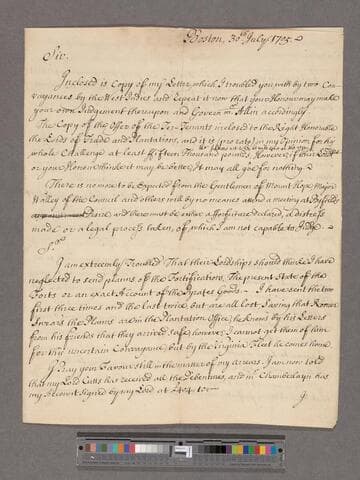 Boston, 30th July 1705.
Sir.
Inclosed is Copy of my Letter, which I troubled you with by two Con-
veyances by the West Indies and Repeat it now that your Honour may make
your own Judgement thereupon and Govern mr Allen accordingly.
The Copy of the Offer of the Ter-Tenants inclosed to the Right Honorable
the Lords of Trade and Plantations, and it is pro rato in my Opinion for the
whole Challenge at least fifteen Thousand pounds. However if their Lordps
or your Honour thinke it may be better, It may all goe for nothing.
There is no more to be Expected from the Gentlemen of Mount Hope, Major
Walley of the Council and others will by no means attend a meeting at Bristoll
and there must be either a forfeiture declared, a distress
made or a legal process taken, of which I am not capable to Judge.
Sr
I am extreamly Troubled That their Lordships should thinke I have
neglected to send plaines of the Fortifications, The present State of the
Forts or an exact Account of the Pirates Goods. I have sent the two
first three times and the last twice, but are all lost Saving that
the Plaines are in the Plantation Office, he knows by his Letters
from his friends that they arrived safe, however I cannot get them of him
for any uncertain Conveyance, but by the Virginia Fleet he comes home.
I Pray your Favour still in the matter of my arrears. I am now told
that my Lord Cutts has received all the Debentures, and mr Chamberlayn has
my Account signed by my Lord at